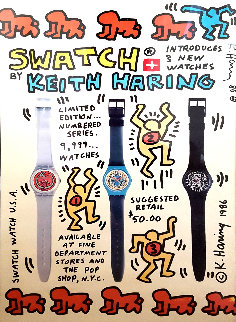 SWATCH®
BY KEITH HARING
INTRODUCES
3 NEW
WATCHES
LIMITED
EDITION...
NUMBERED
SERIES.
9,999...
WATCHES
1
2
3
SUGGESTED
RETAIL
$50.00
AVAILABLE
AT FINE
DEPARTMENT
STORES AND
THE POP
SHOP, N.Y.C.
SWATCH WATCH U.S.A.
© K. Haring 1986